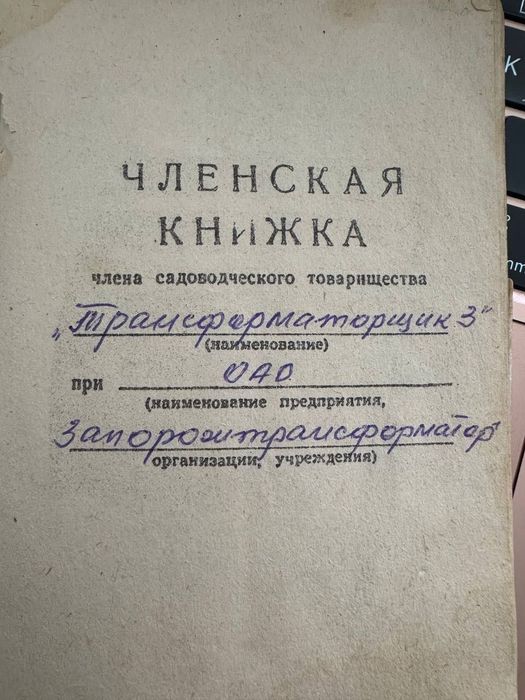 ЧЛЕНСКАЯ
КНИЖКА
члена садоводческого товарищества
„Трансформаторщик 3"
(наименование)
при ОАО
(наименование предприятия,
Запорожтрансформатор"
организации, учреждения)
K